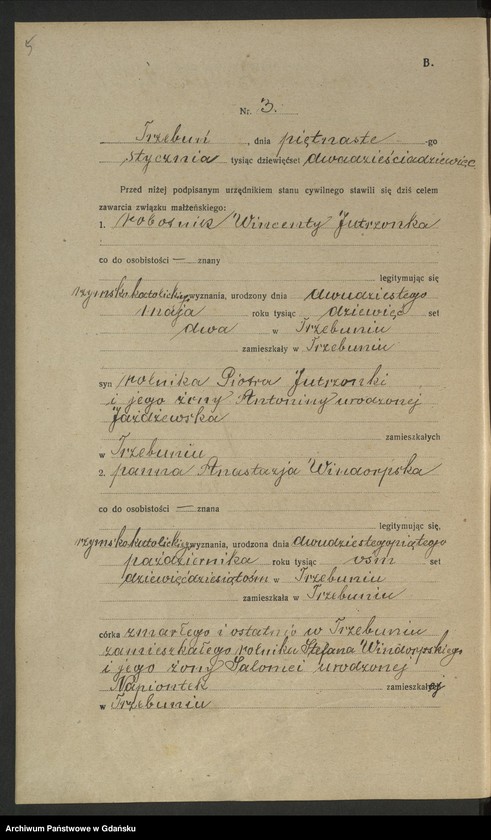 5
B.
Nr. 3.
Trzebuń, dnia piętnaste -go
stycznia tysiąc dziewięćset dwadzieściadziewięć
Przed niżej podpisanym urzędnikiem stanu cywilnego stawili się dziś celem
zawarcia związku małżeńskiego:
1. robotnik Wincenty Jutrzonka
co do osobistości — znany
legitymując się
rzymsko katolickiego wyznania, urodzony dnia dwudziestego
maja roku tysiąc dziewięć set
dwa w Trzebuniu
zamieszkały w Trzebuniu
syn rolnika Piotra Jutrzonki
i jego żony Antoniny urodzonej
Jażdżewska
zamieszkałych
w Trzebuniu
2. panna Anastazja Windorpska
co do osobistości — znana
legitymując się,
rzymsko katolickiego wyznania, urodzona dnia dwudziestegopiątego
października roku tysiąc ośm set
dziewięćdziesiątośm w Trzebuniu
zamieszkała w Trzebuniu
córka zmarłego i ostatnio w Trzebuniu
zamieszkałego rolnika Stefana Windorpskiego
i jego żony Salomei urodzonej
Napiontek zamieszkałej
w Trzebuniu
Archiwum Państwowe w Gdańsku